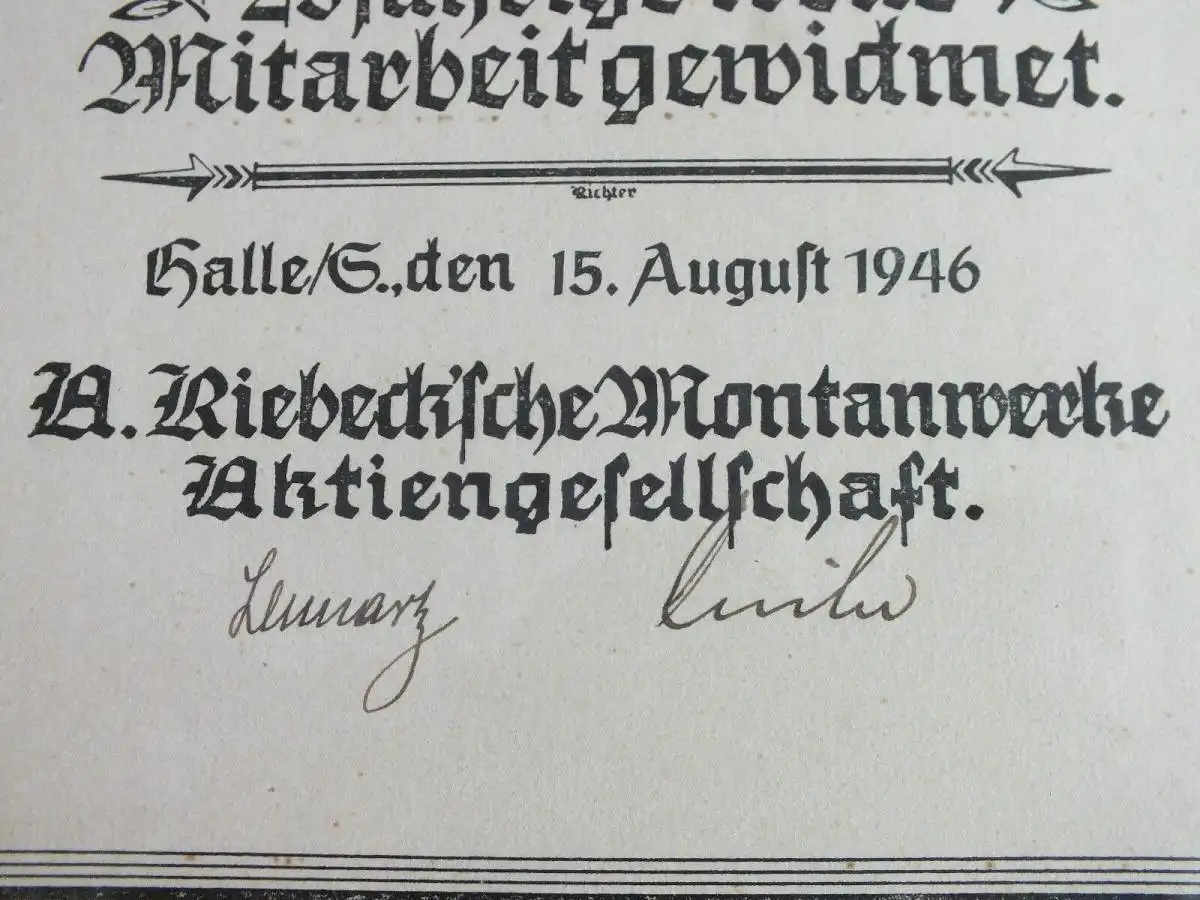 25jährige treue
Mitarbeit gewidmet.
Richter
Halle/S., den 15. Auguſt 1946
A. Riebeck'ſche Montanwerke
Aktiengeſellſchaft.
Lennarz